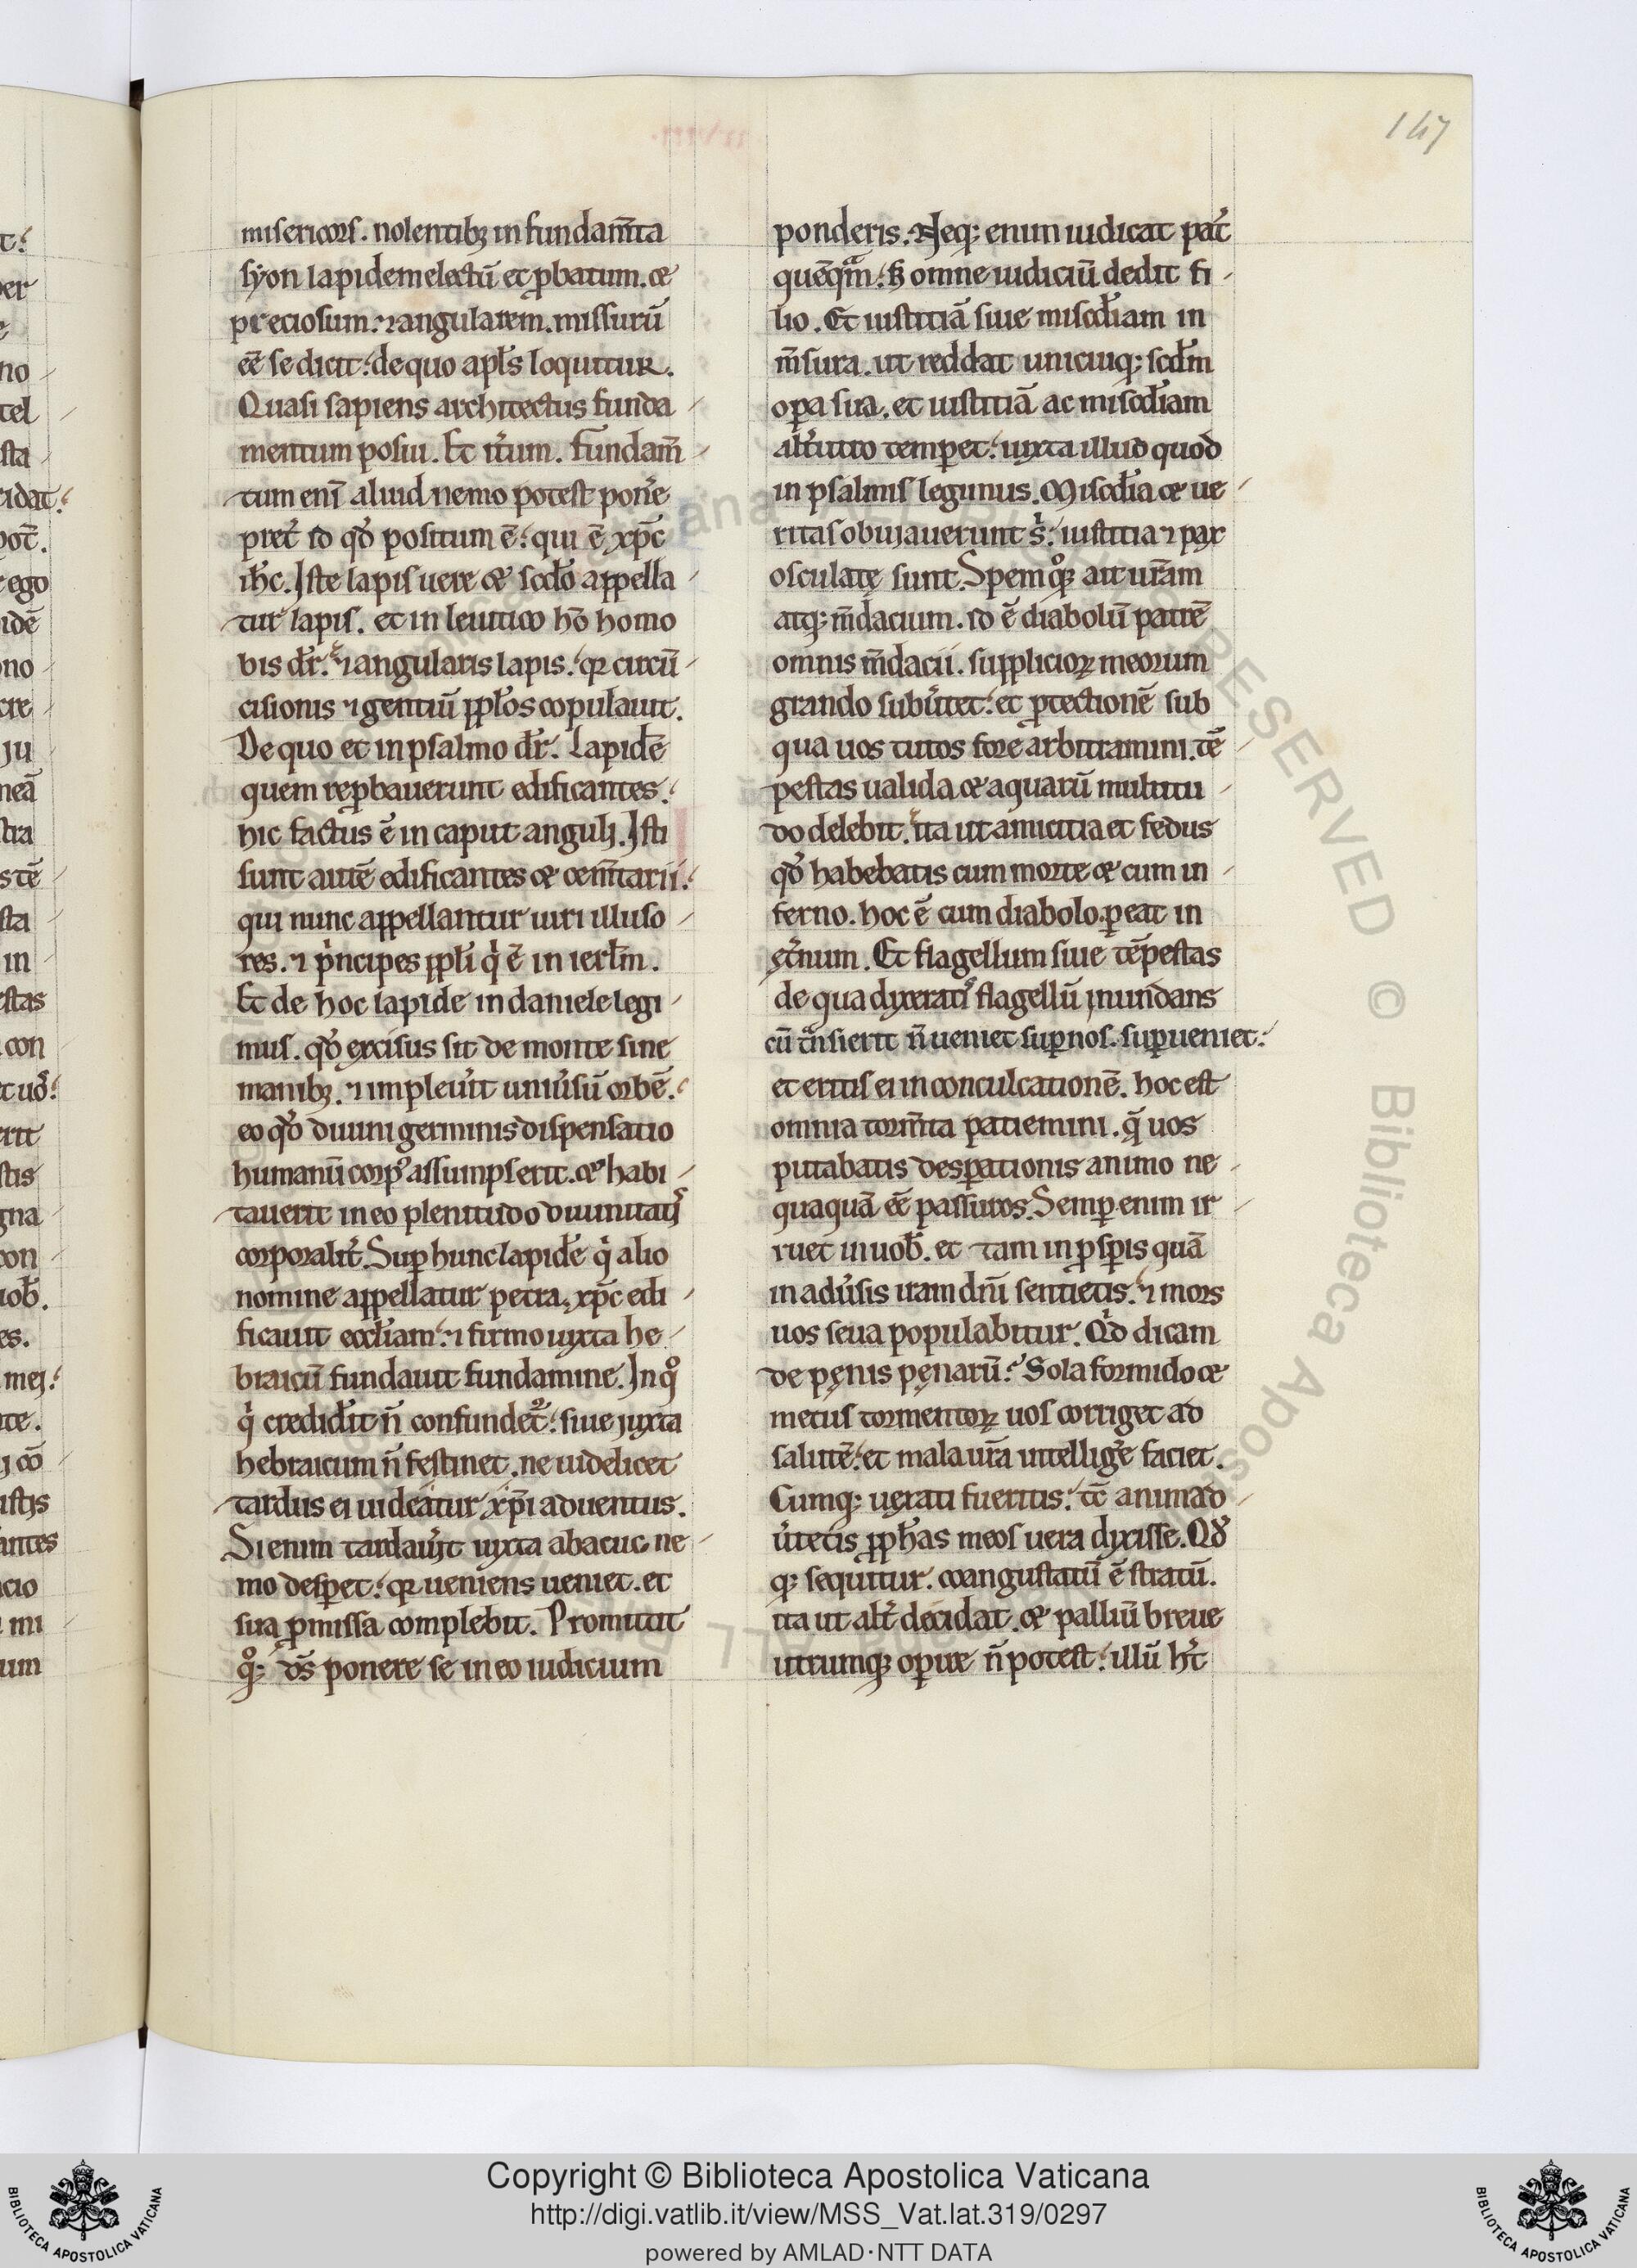 147
misericors. nolentibꝫ in fundam̅ta
syon lapidem electū et ꝓbatum. &
preciosum. ⁊ angularem. missurū
eē se dicit: de quo apl̅s loquitur.
Quasi sapiens architectus funda
mentum posui. Et it̾um. Fundam̅
tum enī aliud nemo potest pon̾e
pret̾ id qd̾ positum ē: qui ē xp̅c
ih̅c. Iste lapis uere & sc̅do appella
tur lapis. et in leuitico hō homo
bis dr̅. ⁊ angularis lapis: qꝛ circū
cisionis ⁊ gentiū pp̅los copulauit.
De quo et in psalmo dr̅. Lapidē
quem reꝓbauerunt edificantes:
hic factus ē in caput anguli. Isti
sunt autē edificantes & cem̅tarii:
qui nunc appellantur uiri illuso
res. ⁊ pͥncipes pp̅li qͥ ē in ierl̅m.
Et de hoc lapide in daniele legi
mus. qd̾ excisus sit de monte sine
manibꝫ. ⁊ impleu̾it uniu̾sū orbē:
eo qd̾ diuini germinis dispensatio
humanū corpꝰ assumpserit. & habi
tauerit in eo plenitudo diuinitatis
corporalit̾. Suꝑ hunc lapidē qͥ alio
nomine appellatur petra. xp̅c edi
ficauit eccl̅iam: ⁊ firmo iuxta he
braicū fundauit fundamine. In qͦ
qͥ credid̾it n̄ confundet̾: siue juxta
hebraicum n̄ festinet. ne uidelicet
tardus ei uideatur xp̅i aduentus.
Si enim tardau̾it iuxta abacuc. ne
mo desꝑet: qꝛ ueniens ueniet. et
sua ꝓmissa complebit. Promittit
qͦꝫ ds̅ ponere se in eo iudicium
ponderis. Neqꝫ enim iudicat pat̾
quēqͣm: sꝫ omne iudiciū dedit fi
lio. Et iustitiā siue misc̅diam in
m̅sura. ut reddat unicuiqꝫ sc̅dm
oꝑa sua. et iustitiā ac misc̅diam
alt̾utro temꝑet: iuxta illud quod
in psalmis legimus. Misc̅dia & ue
ritas obujauerunt s̾: iustitia ⁊ pax
osculatę sunt. Spem qͦꝫ ait ur̅am
atqꝫ m̅dacium. id ē diabolū patrē
omnis m̅dacii. supplicioꝝ meorum
grando subu̾tet: et ꝓtectionē sub
qua uos tutos fore arbitramini. tē
pestas ualida & aquarū multitu
do delebit: ita ut amicitia et fedus
qd̾ habebatis cum morte & cum in
ferno. hoc ē cum diabolo. ꝑeat in
ęt̾num. Et flagellum siue tēpestas
de qua dixeratis flagellū jnundans
cū tͣnsierit n̄ ueniet suꝑ nos. suꝑueniet:
et eritis ei in conculcationē. hoc est
omnia torm̅ta patiemini. q̄ uos
putabatis desꝑationis animo ne
quaquā eē passuros. Semꝑ enim ir
ruet in uob̅. et tam in ꝓsꝑis quā
in adu̾sis iram dn̅i sentietis: ⁊ mors
uos seua populabitur. Qͥd dicam
de pęnis pęnarū? Sola formido &
metus tormentoꝝ uos corriget ad
salutē: et mala ur̅a intellig̾e faciet.
Cumqꝫ uexati fueritis: tc̅ animad
u̾tetis pp̅has meos uera dixisse. Qd̾
qꝫ sequitur. coangustatū ē stratū.
ita ut alt̾ decidat. & palliū breue
utrumqꝫ oꝑire n̄ potest: illū h̅t
Copyright © Biblioteca Apostolica Vaticana
http://digi.vatlib.it/view/MSS_Vat.lat.319/0297
powered by AMLAD·NTT DATA
BIBLIOTECA APOSTOLICA VATICANA
BIBLIOTECA APOSTOLICA VATICANA